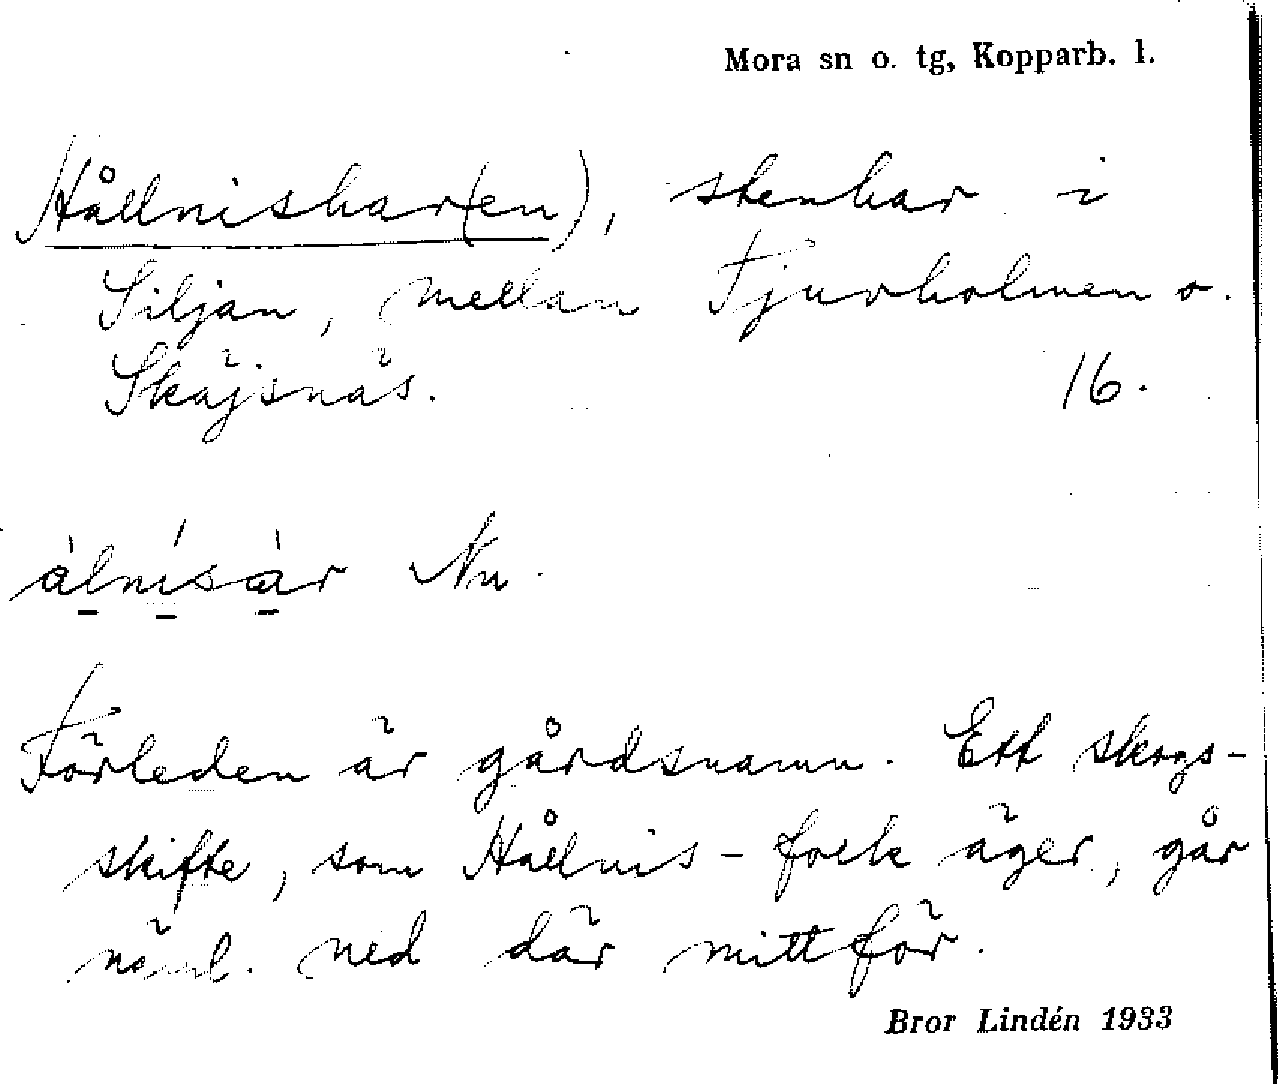 Mora sn o. tg, Kopparb. l.
Hållnishar(en), stenhar i
Siljan, mellan Tjuvholmen o.
Skäjsnäs. 16.
álnísàr Nu.
Förleden är gårdsnamn. Ett skogs-
skifte, som Hållnis-folk äger, går
näml. ned där mittför.
Bror Lindén 1933